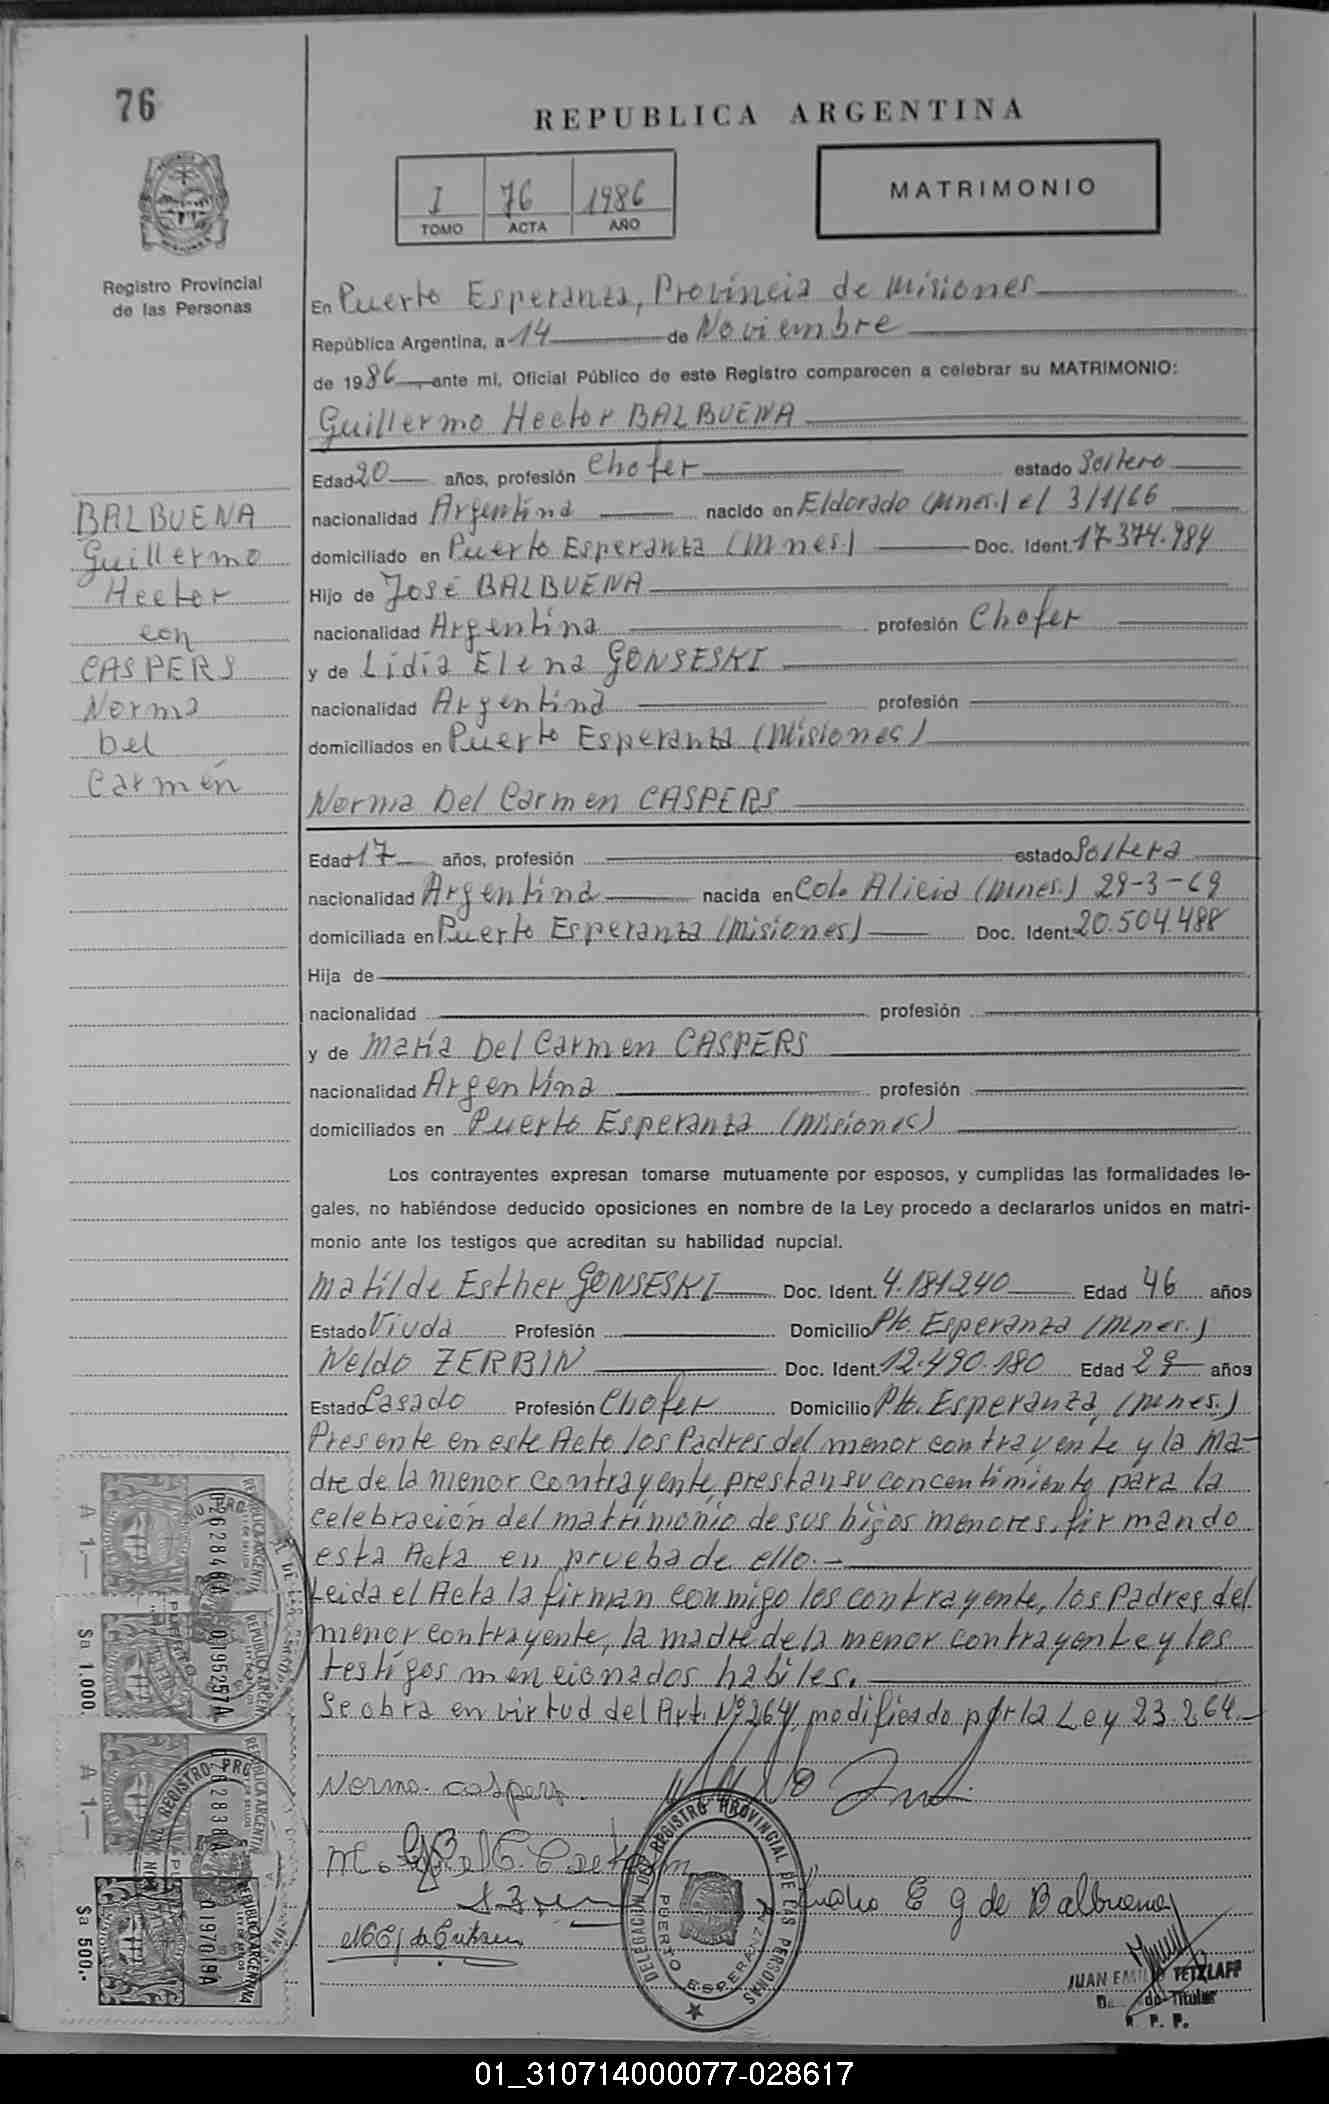 76
REPUBLICA ARGENTINA
I 76 1986
TOMO ACTA AÑO
MATRIMONIO
Registro Provincial
de las Personas
En Puerto Esperanza, Provincia de Misiones
República Argentina, a 14 de Noviembre
de 1986, ante mí, Oficial Público de este Registro comparecen a celebrar su MATRIMONIO:
Guillermo Hector BALBUENA
Edad 20 años, profesión Chofer estado Soltero
nacionalidad Argentina nacido en Eldorado (Mnes.) el 3/1/66
domiciliado en Puerto Esperanza (Mnes) Doc. Ident. 17.374.984
Hijo de José BALBUENA
nacionalidad Argentina profesión Chofer
y de Lidia Elena GONSESKI
nacionalidad Argentina profesión
domiciliados en Puerto Esperanza (Misiones)
BALBUENA
Guillermo
Hector
con
CASPERS
Norma
Del
Carmén
Norma Del Carmen CASPERS
Edad 17 años, profesión estado Soltera
nacionalidad Argentina nacida en Col. Alicia (Mnes.) 29-3-69
domiciliada en Puerto Esperanza (Misiones) Doc. Ident. 20.504.488
Hija de
nacionalidad profesión
y de María Del Carmen CASPERS
nacionalidad Argentina profesión
domiciliados en Puerto Esperanza (Misiones)
Los contrayentes expresan tomarse mutuamente por esposos, y cumplidas las formalidades le-
gales, no habiéndose deducido oposiciones en nombre de la Ley procedo a declararlos unidos en matri-
monio ante los testigos que acreditan su habilidad nupcial.
Matilde Esther GONSESKI Doc. Ident. 4.181.240 Edad 46 años
Estado Viuda Profesión Domicilio Pto. Esperanza (Mnes.)
Neldo ZERBIN Doc. Ident. 12.490.180 Edad 29 años
Estado Casado Profesión Chofer Domicilio Pto. Esperanza, (Mnes.)
Presente en este Acto los Padres del menor contrayente y la Ma-
dre de la menor contrayente, prestan su concentimiento para la
celebración del matrimonio de sus hijos menores, firmando
esta Acta en prueba de ello.-
Leida el Acta la firman conmigo los contrayente, los Padres del
menor contrayente, la madre de la menor contrayente y los
testigos mencionados habiles.
Se obra en virtud del Art. Nº 264, modificado por la Ley 23.264.-
Norma caspers.
E G de Balbuena
DELEGACION DEL REGISTRO PROVINCIAL DE LAS PERSONAS
PUERTO ESPERANZA
JUAN EMILIO TETZLAFF
Titular
R. P. P.
A 1.—
REPUBLICA ARGENTINA
$a 1.000.
REPUBLICA ARGENTINA
0195257A
A 1.—
REPUBLICA ARGENTINA
$a 500.-
REPUBLICA ARGENTINA
0197019A
01_310714000077-028617